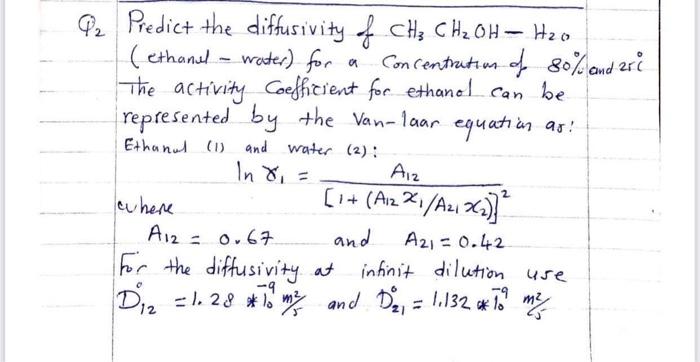 Q2 Predict the diffusivity of CH3 CH2 OH – H2O
(ethanol – water) for a Concentration of 80% and 25°C
The activity Coefficient for ethanol can be
represented by the Van-laar equation as:
Ethanol (1) and water (2):
ln γ1 = A12 / [1 + (A12 x1 / A21 x2)]^2
where
A12 = 0.67 and A21 = 0.42
For the diffusivity at infinit dilution use
D°12 = 1.28 * 10^-9 m2/s and D°21 = 1.132 * 10^-9 m2/s